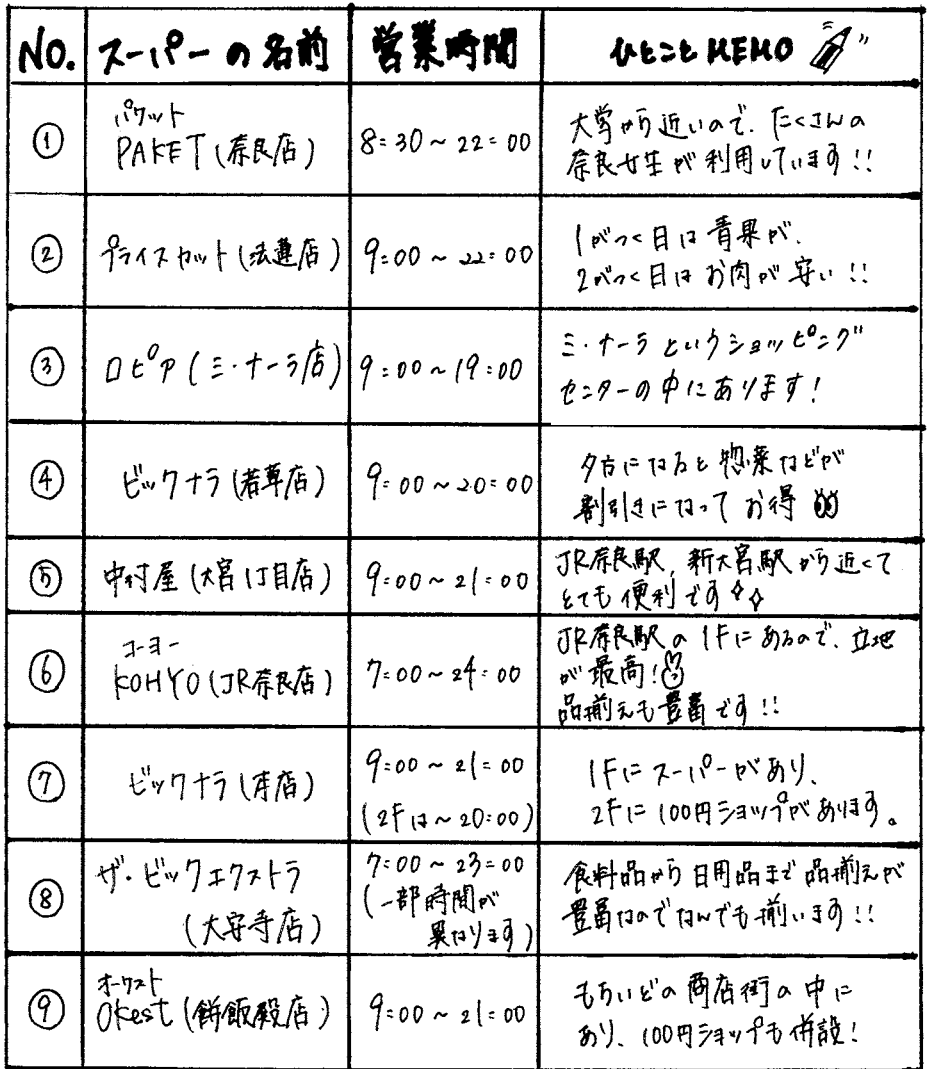 NO.
スーパーの名前
営業時間
ひとことMEMO
①
パケット
PAKET(奈良店)
8:30～22:00
大学から近いので、たくさんの
奈良女生が利用しています!!
②
プライスカット(法蓮店)
9:00～22:00
1がつく日は青果が、
2がつく日はお肉が安い!!
③
ロピア(ミ・ナーラ店)
9:00～19:00
ミ・ナーラというショッピング
センターの中にあります!
④
ビックナラ(若草店)
9:00～20:00
夕方になると惣菜などが
割引きになってお得
⑤
中村屋(大宮1丁目店)
9:00～21:00
JR奈良駅、新大宮駅から近くて
とても便利です
⑥
コーヨー
KOHYO(JR奈良店)
7:00～24:00
JR奈良駅の1Fにあるので、立地
が最高!
品揃えも豊富です!!
⑦
ビックナラ(本店)
9:00～21:00
(2Fは～20:00)
1Fにスーパーがあり、
2Fに100円ショップがあります。
⑧
ザ・ビックエクストラ
(大安寺店)
7:00～23:00
(一部時間が
異なります)
食料品から日用品まで品揃えが
豊富なのでなんでも揃います!!
⑨
オーケスト
Okest(餅飯殿店)
9:00～21:00
もちいどの商店街の中に
あり、100円ショップも併設!